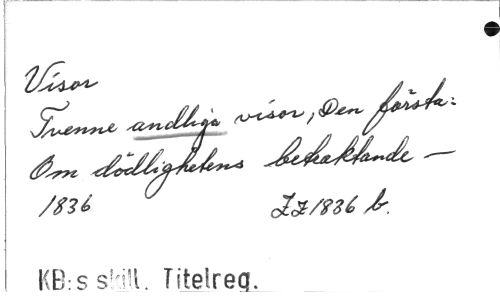 Visor
Tvenne andliga visor, Den första:
Om dödlighetens betraktande —
1836 ZZ1836 b.
KB:s skill. Titelreg.